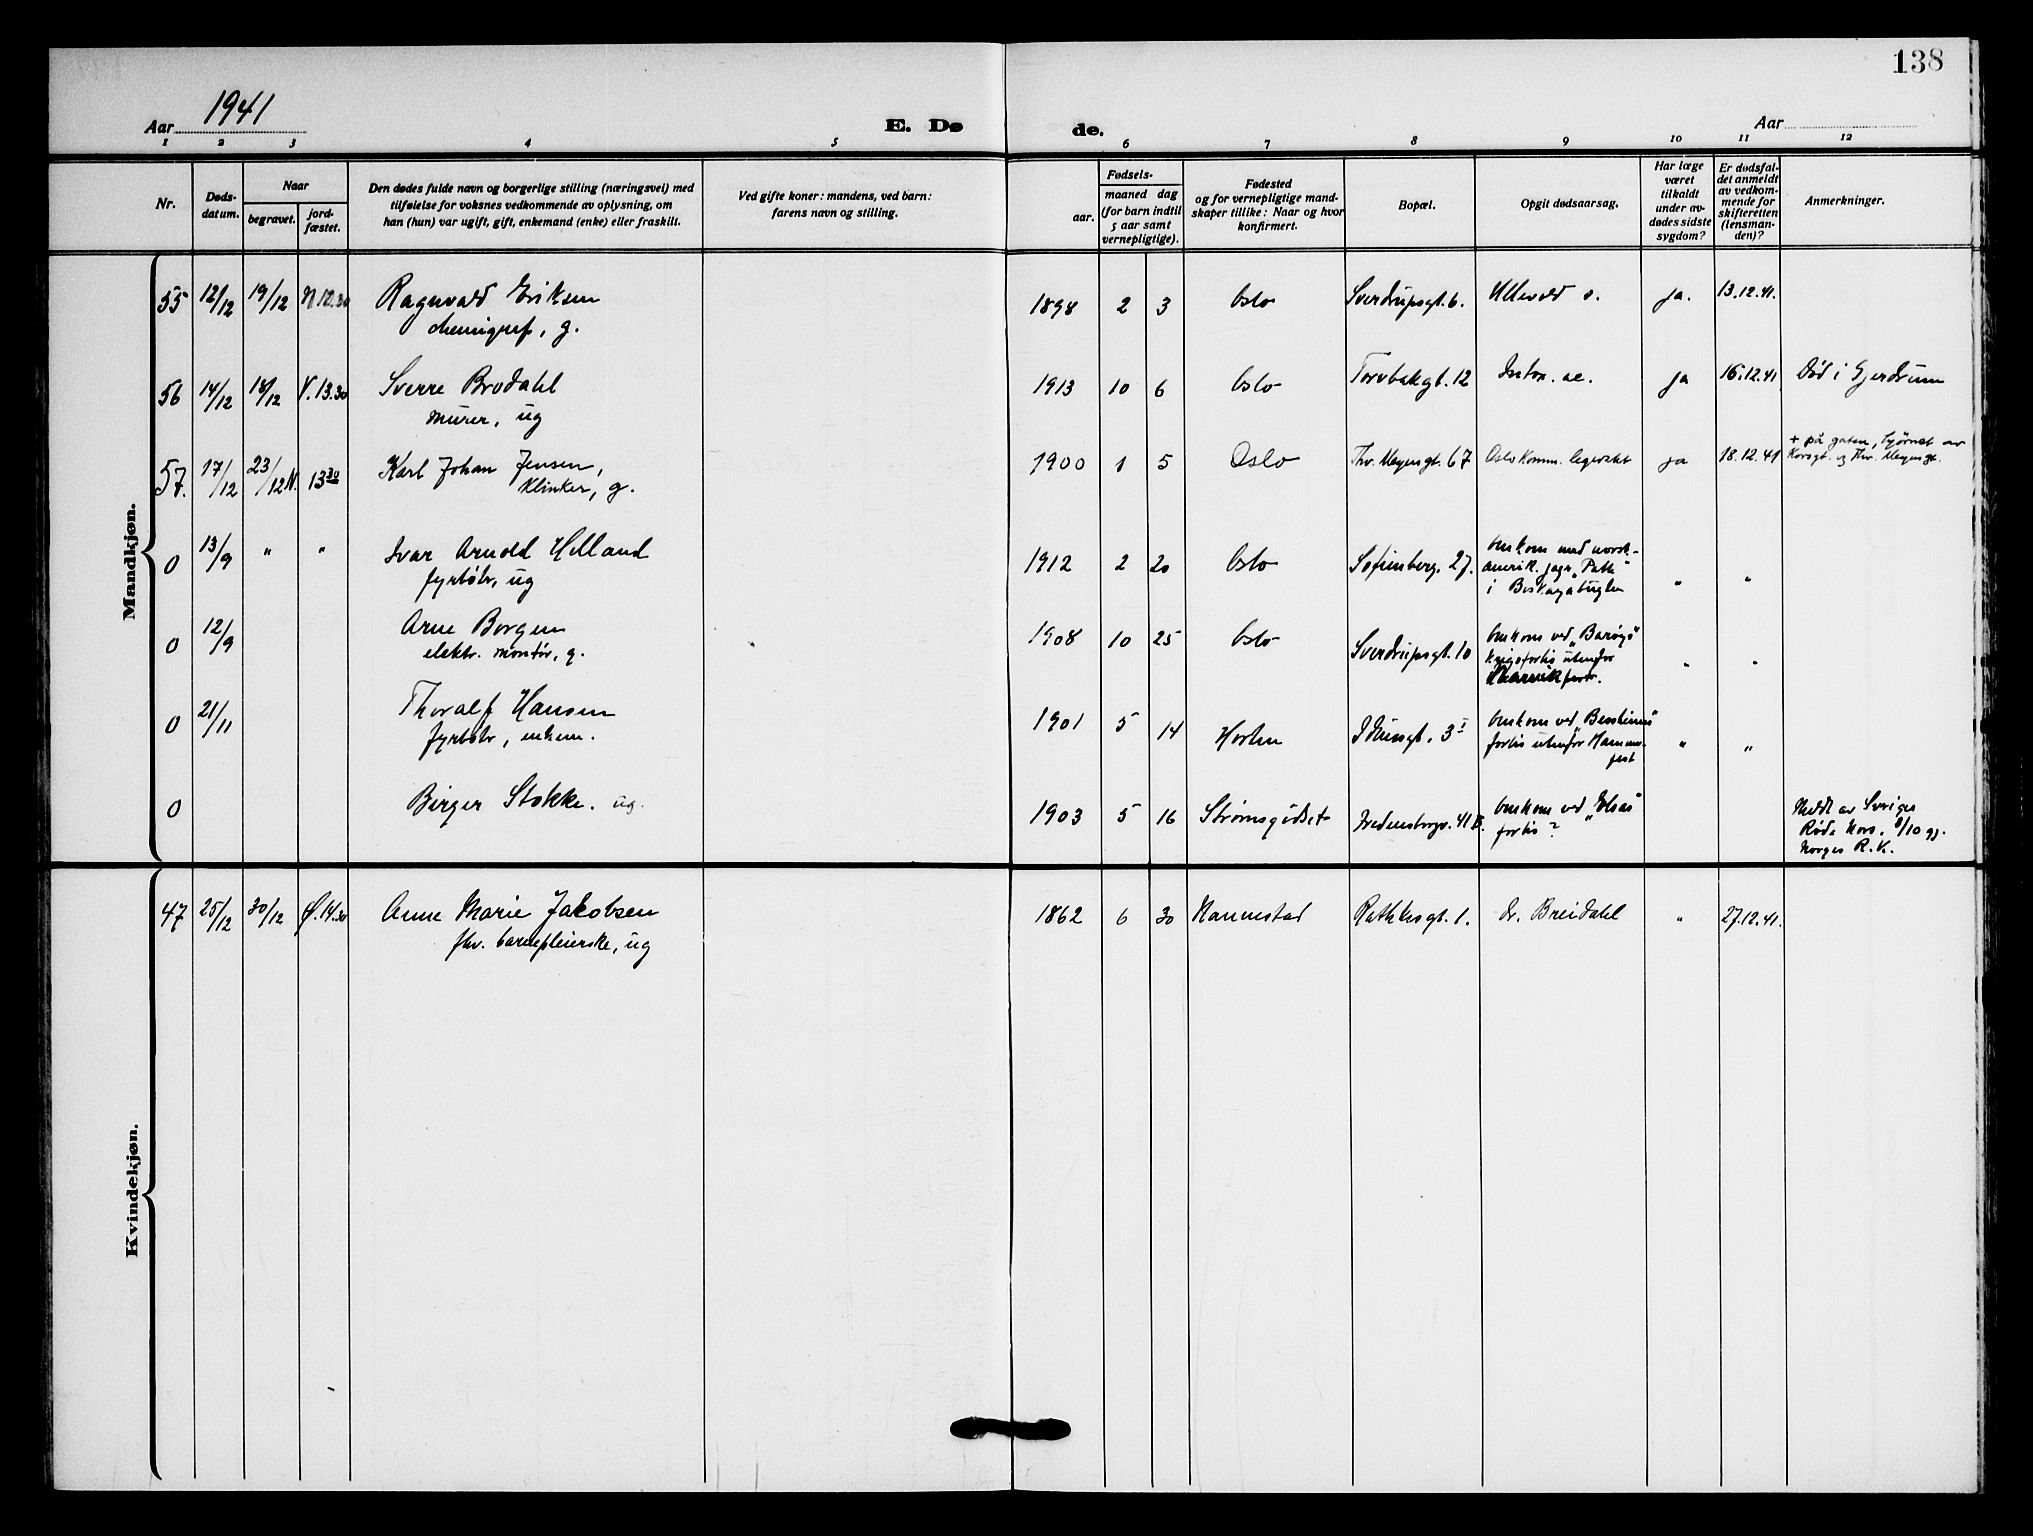 138
Aar 1941
E. Dø
de.
Aar
1 2 3 4 5 6 7 8 9 10 11 12
Nr.
Døds-
datum.
Naar
begravet.
jord-
fæstet.
Den dødes fulde navn og borgerlige stilling (næringsvei) med
tilføielse for voksnes vedkommende av oplysning, om
han (hun) var ugift, gift, enkemand (enke) eller fraskilt.
Ved gifte koner: mandens, ved barn:
farens navn og stilling.
Fødsels-
aar.
maaned dag
(for barn indtil
5 aar samt
vernepligtige).
Fødested
og for vernepligtige mand-
skaper tillike: Naar og hvor
konfirmert.
Bopæl.
Opgit dødsaarsag.
Har læge
været
tilkaldt
under av-
dødes sidste
sygdom?
Er dødsfal-
det anmeldt
av vedkom-
mende for
skifteretten
(lensman-
den)?
Anmerkninger.
Mandkjøn.
55 12/12 19/12 N 12.30 Ragnvald Eriksen
, g.
1898 2 3 Oslo Sverdrupsgt. 6. Ullevål s. ja. 13.12.41.
56 14/12 18/12 V. 13.30 Sverre Brodahl
murer, ug
1913 10 6 Oslo Torvbakgt. 12 Intox. ac. ja 16.12.41 Død i Gjerdrum
57. 17/12 23/12 N. 13 30 Karl Johan Jensen,
Klinker, g.
1900 1 5 Oslo Thv. Meyersgt. 67 Oslo komm. legevakt ja 18.12.41
+ på gaten, hjørnet av
Korsgt. og Thv. Meyersgt.
0 13/9 " " Ivar Arnold Helland
fyrbøter, ug
1912 2 20 Oslo Sofienberg. 27. Omkom med norsk-
amerik. jager
i Biskayabugten " "
0 12/9 Arne Borgen
elektr. montør, g.
1908 10 25 Oslo Sverdrupsgt. 10 Omkom ved „Barøys"
krigsforlis utenfor
" "
0 21/11 Thoralf Hansen
fyrbøter, enkem.
1901 5 14 Horten Idunsgt. 3 I Omkom ved
forlis utenfor Hammer-
fest " "
0 Birger Stokke. ug.
1903 5 16 Strømsgodset Fredensborgv. 41 II. Omkom ved
forlis?
Meddt av Sveriges
Røde Kors. 8/10 gj.
Norges R. K.
Kvindekjøn.
47 25/12 30/12 Ø. 14.30 Anne Marie Jakobsen
fhv. barnepleierske, ug
1862 6 30 Rathkesgt. 1. dr. Breidahl " 27.12.41.